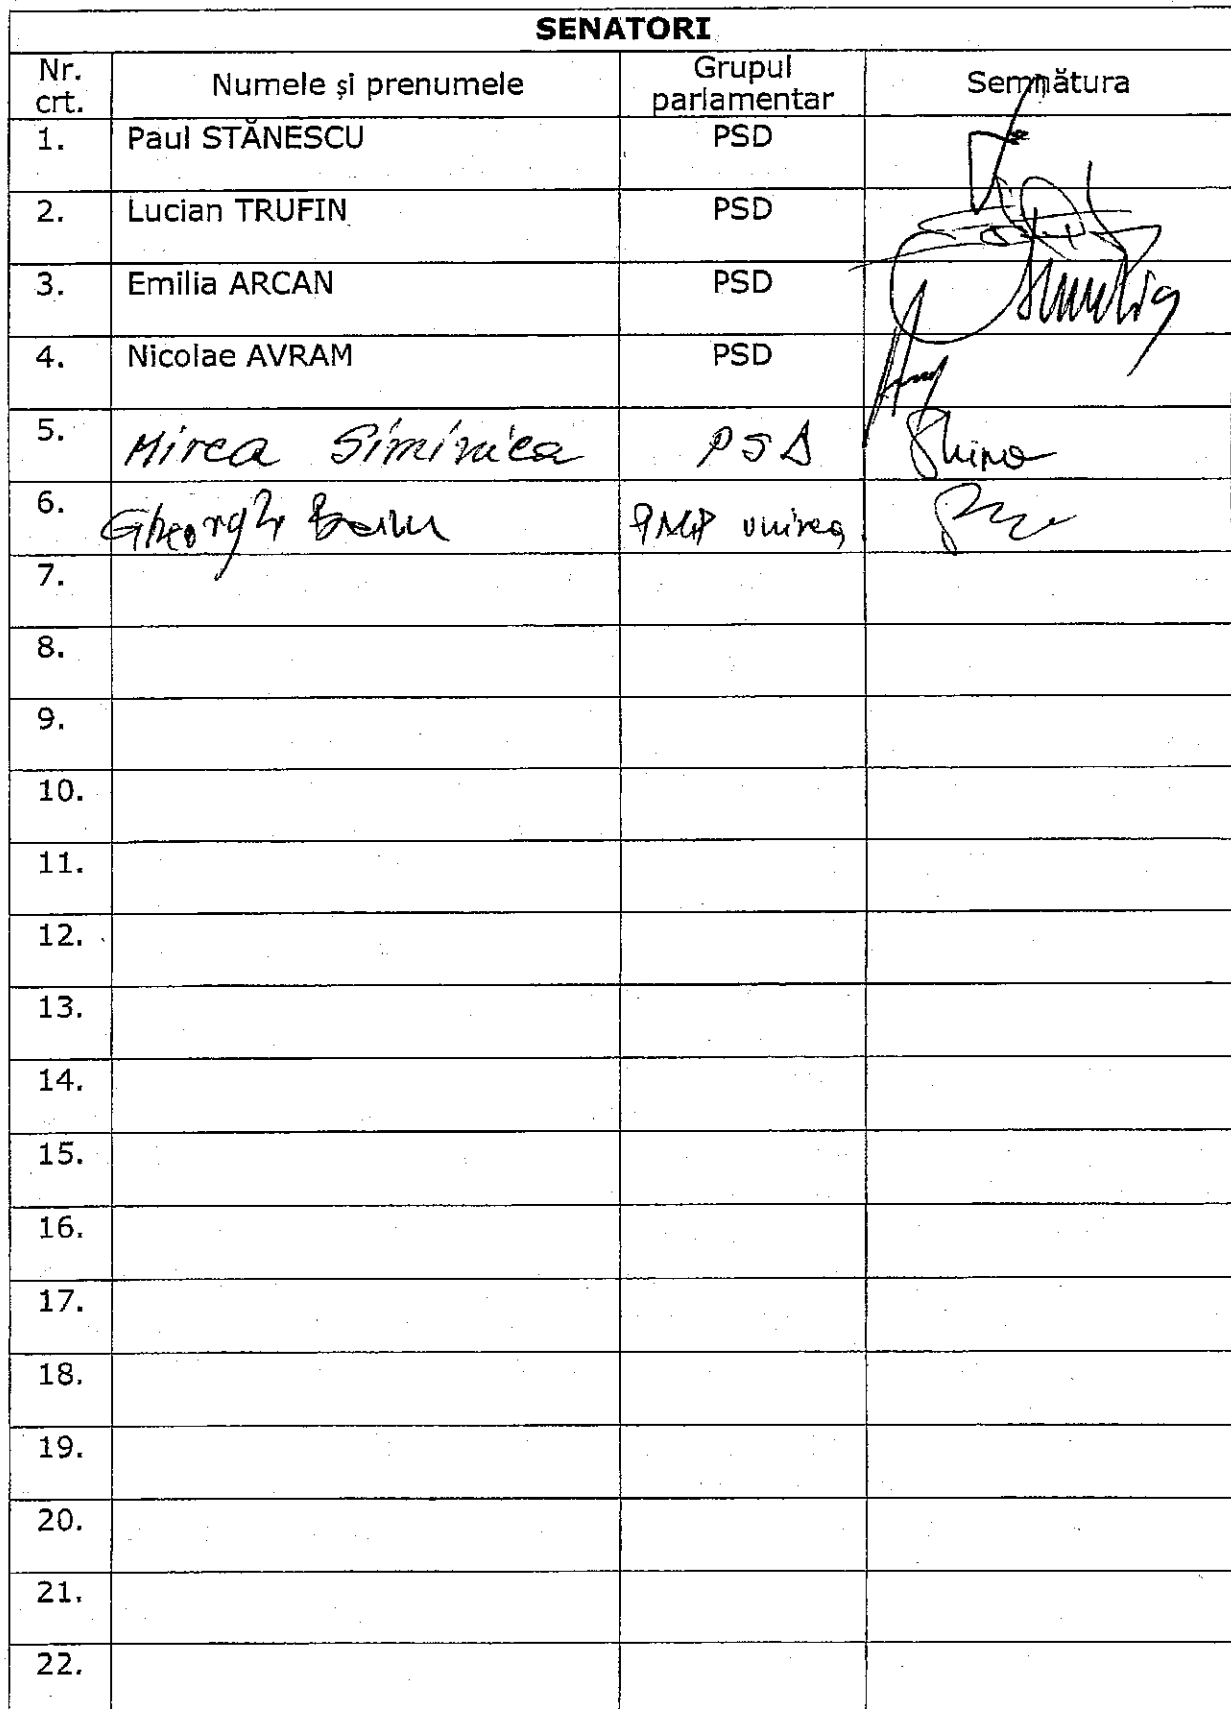 SENATORI
Nr. crt. Numele și prenumele Grupul parlamentar Semnătura
1. Paul STĂNESCU PSD
2. Lucian TRUFIN PSD
3. Emilia ARCAN PSD
4. Nicolae AVRAM PSD
5. Mirea Siminica PSD
6. Gheorghe PMP unirea
7.
8.
9.
10.
11.
12.
13.
14.
15.
16.
17.
18.
19.
20.
21.
22.